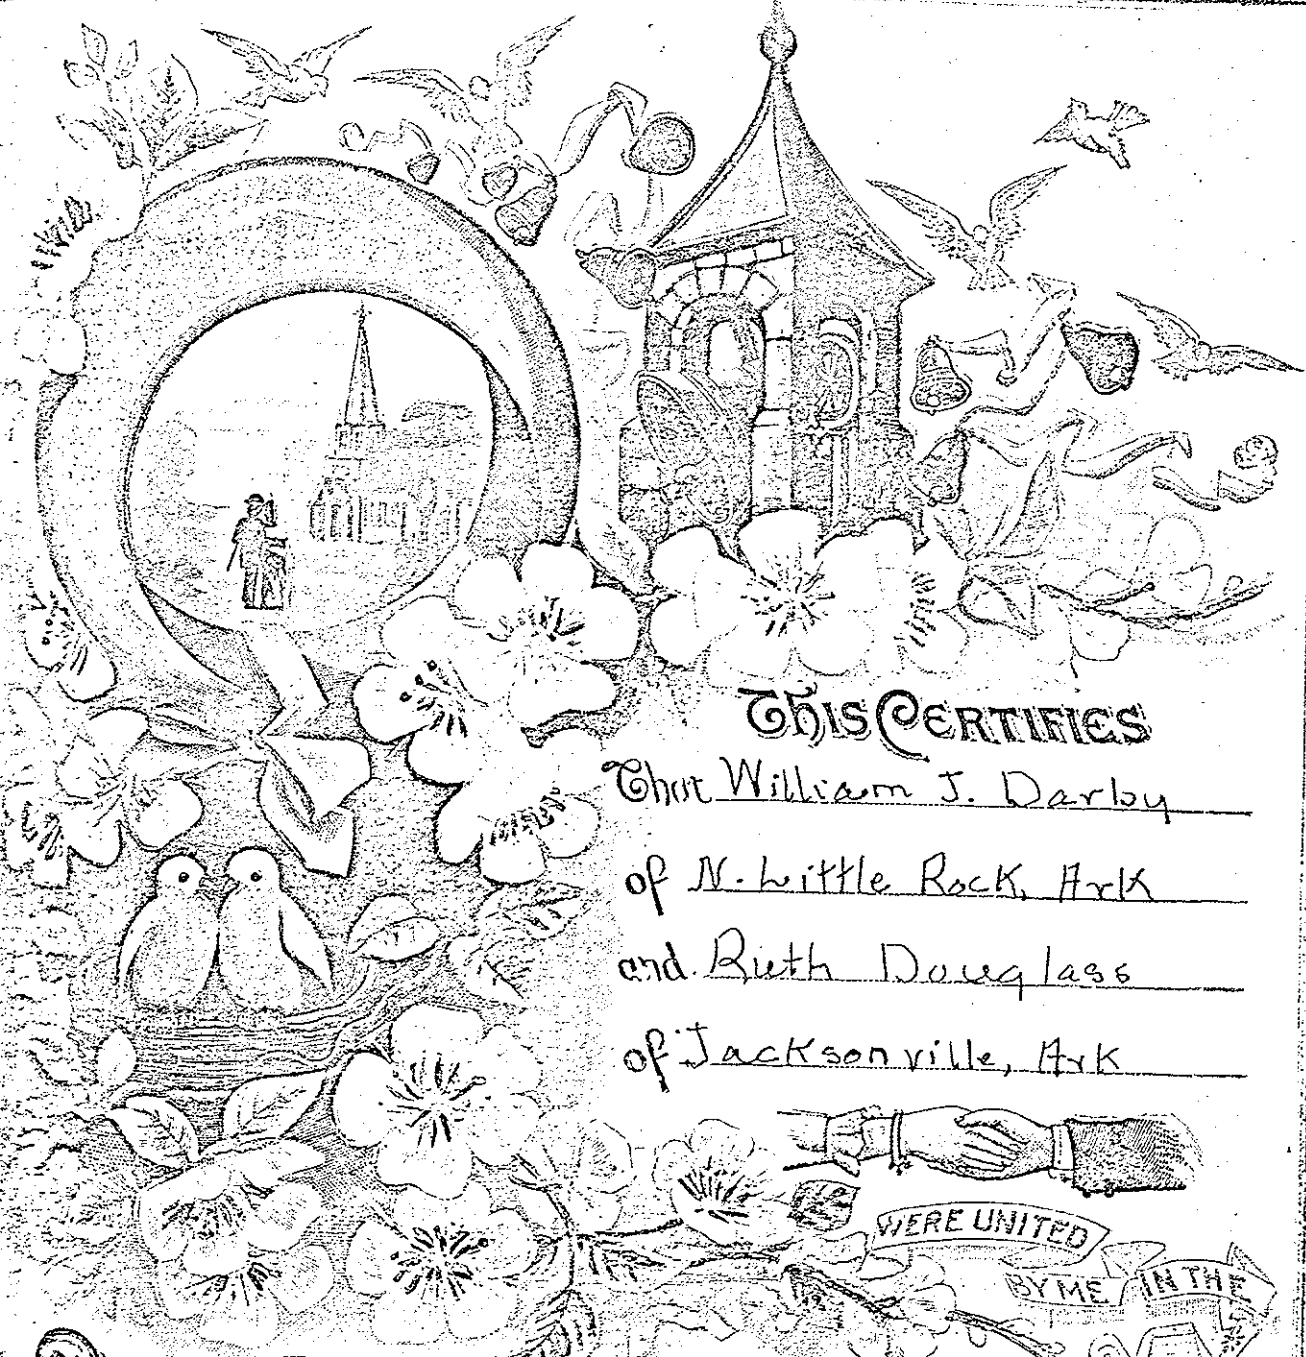 This Certifies
That William J. Darby
of N. Little Rock, Ark
and Ruth Douglass
of Jacksonville, Ark
WERE UNITED
BY ME IN THE